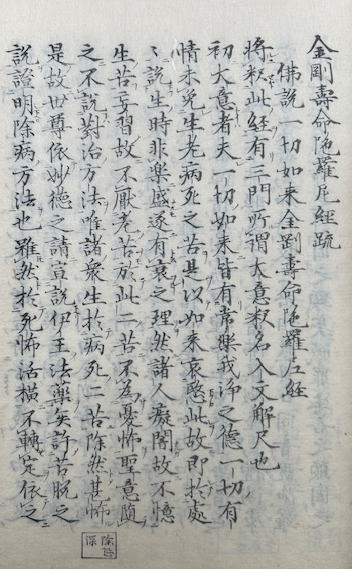 金剛壽命陁羅尼經疏
佛說一切如来金剛壽命陁羅尼経
將釈此経有三門所謂大意釈名入文解尺也
初大意者夫一切如来皆有常樂我浄之徳一切有
情未免生老病死之苦是以如来哀愍此故即於處
〻說生時非樂盛逐有衰之理然諸人癡闇故不憶
生苦妄習故不厭老苦於此二苦不為憂怖聖意随
之不說對治方法唯諸衆生於病死二苦除然甚怖
是故世尊依妙徳之請宣說伊王法藥矣許苦脱之
說證明除病方法也雖然於死怖活横不轉定依之